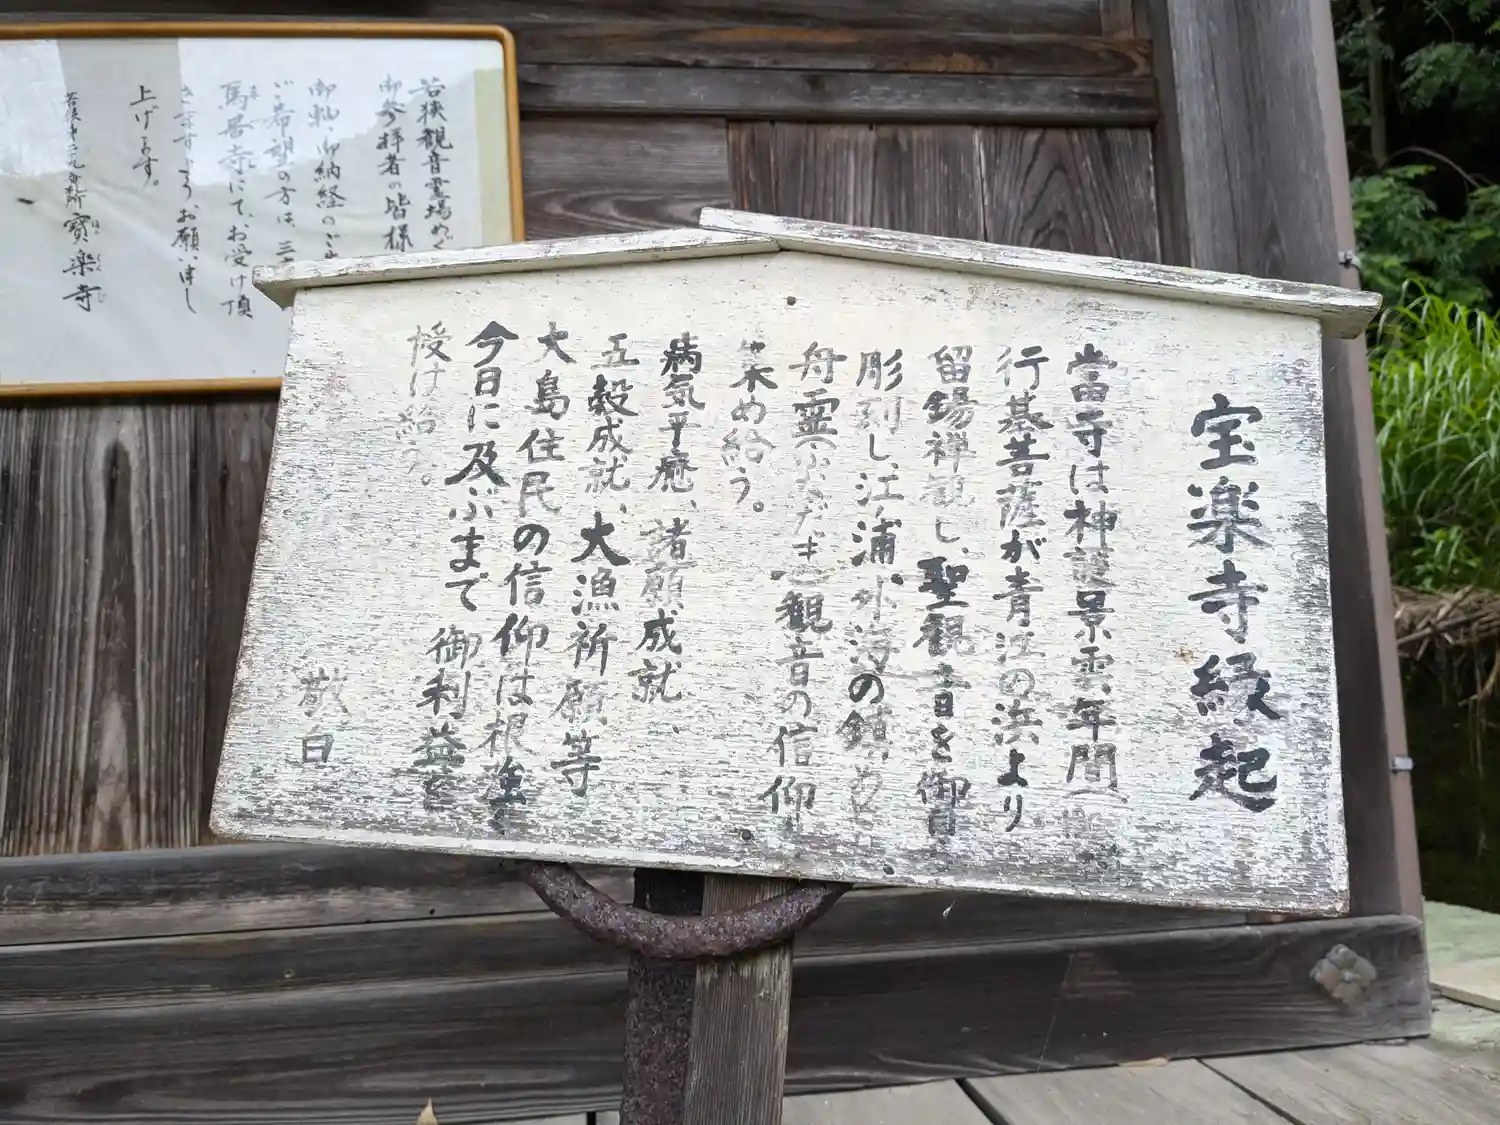 宝楽寺縁起
當寺は神護景雲年間
行基菩薩が青江の浜より
留錫禅観し、聖観音を御自
彫刻し、江浦外海の鎮め
舟霊観音の信仰
集め給う。
病気平癒、諸願成就、
五穀成就、大漁祈願等
大島住民の信仰は根強く
今日に及ぶまで御利益を
授け給う。
敬白
若狭観音霊場めぐ
御参拝者の皆様
御軸、御納経のご
ご希望の方は、三
馬居寺にて、お受け頂
お願い申し
上げます。
寶楽寺